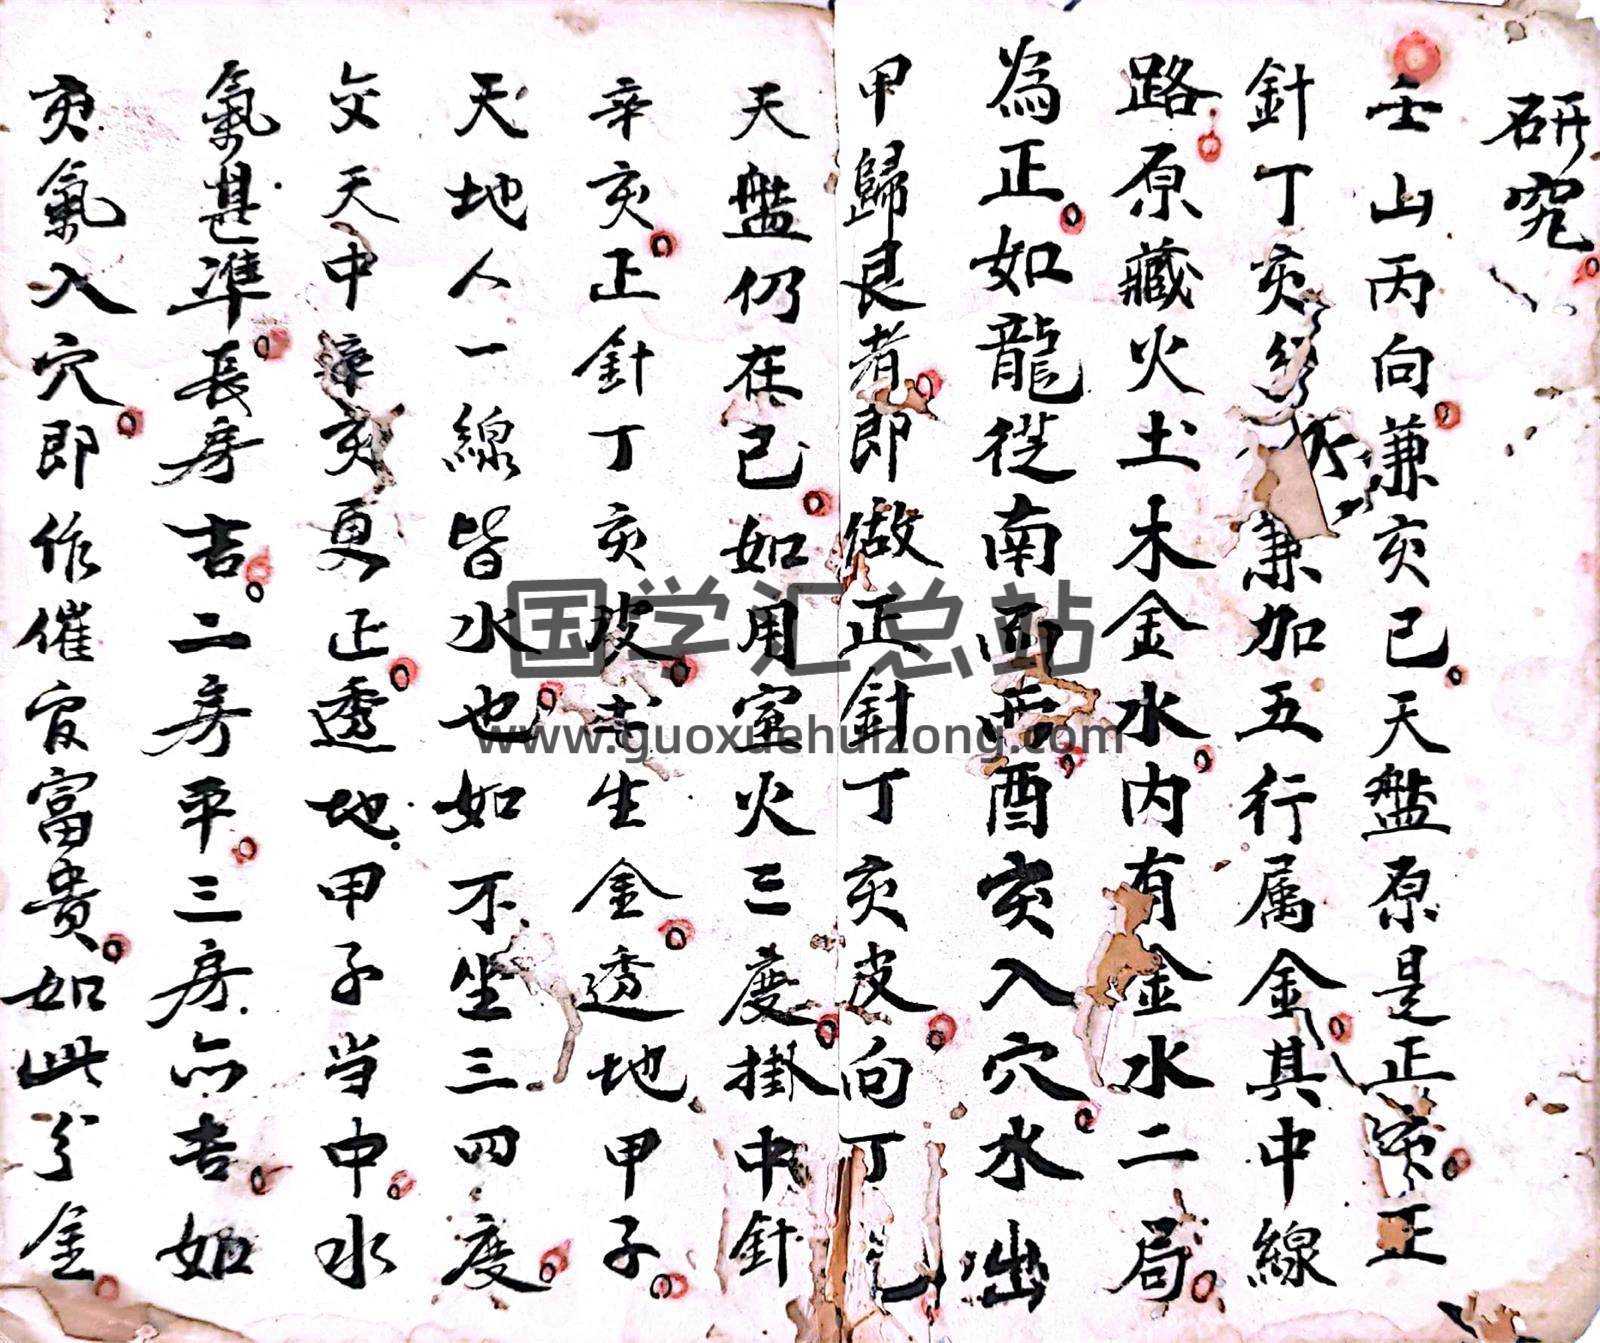 研究
壬山丙向兼亥巳天盤原是正亥正
針丁亥兼加五行属金其中線
路原藏火土木金水内有金水二局
為正如龍從南酉亥入穴水出
甲歸艮者即做正針丁亥皮向丁
天盤仍在巳如用室火三度掛中針
辛亥正針丁亥坡生金透地甲子
天地人一線皆水也如不坐三四度
交天中亥更正透地甲子当中水
氣甚準長房吉二房平三房亦吉如
亥氣入穴即作催官富貴如此分金
国学汇总站
www.guoxuehuizong.com